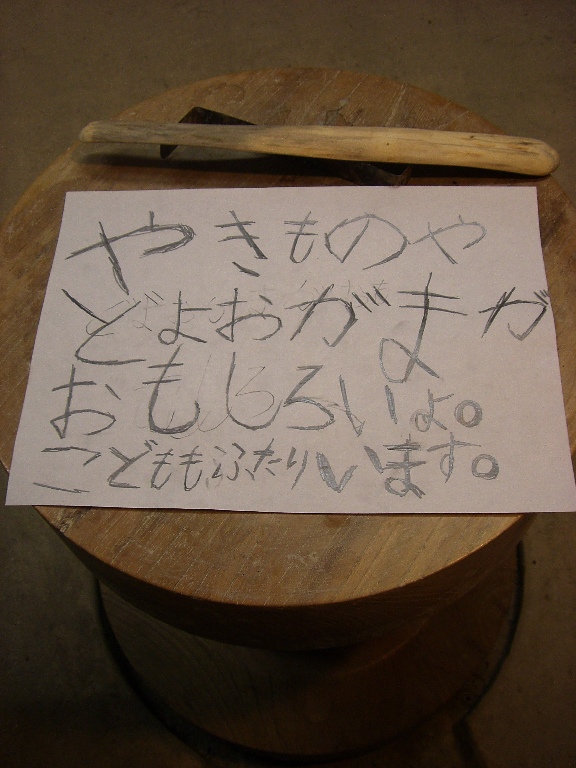 やきものや
どよおがまが
おもしろいよ。
こどももふたりいます。